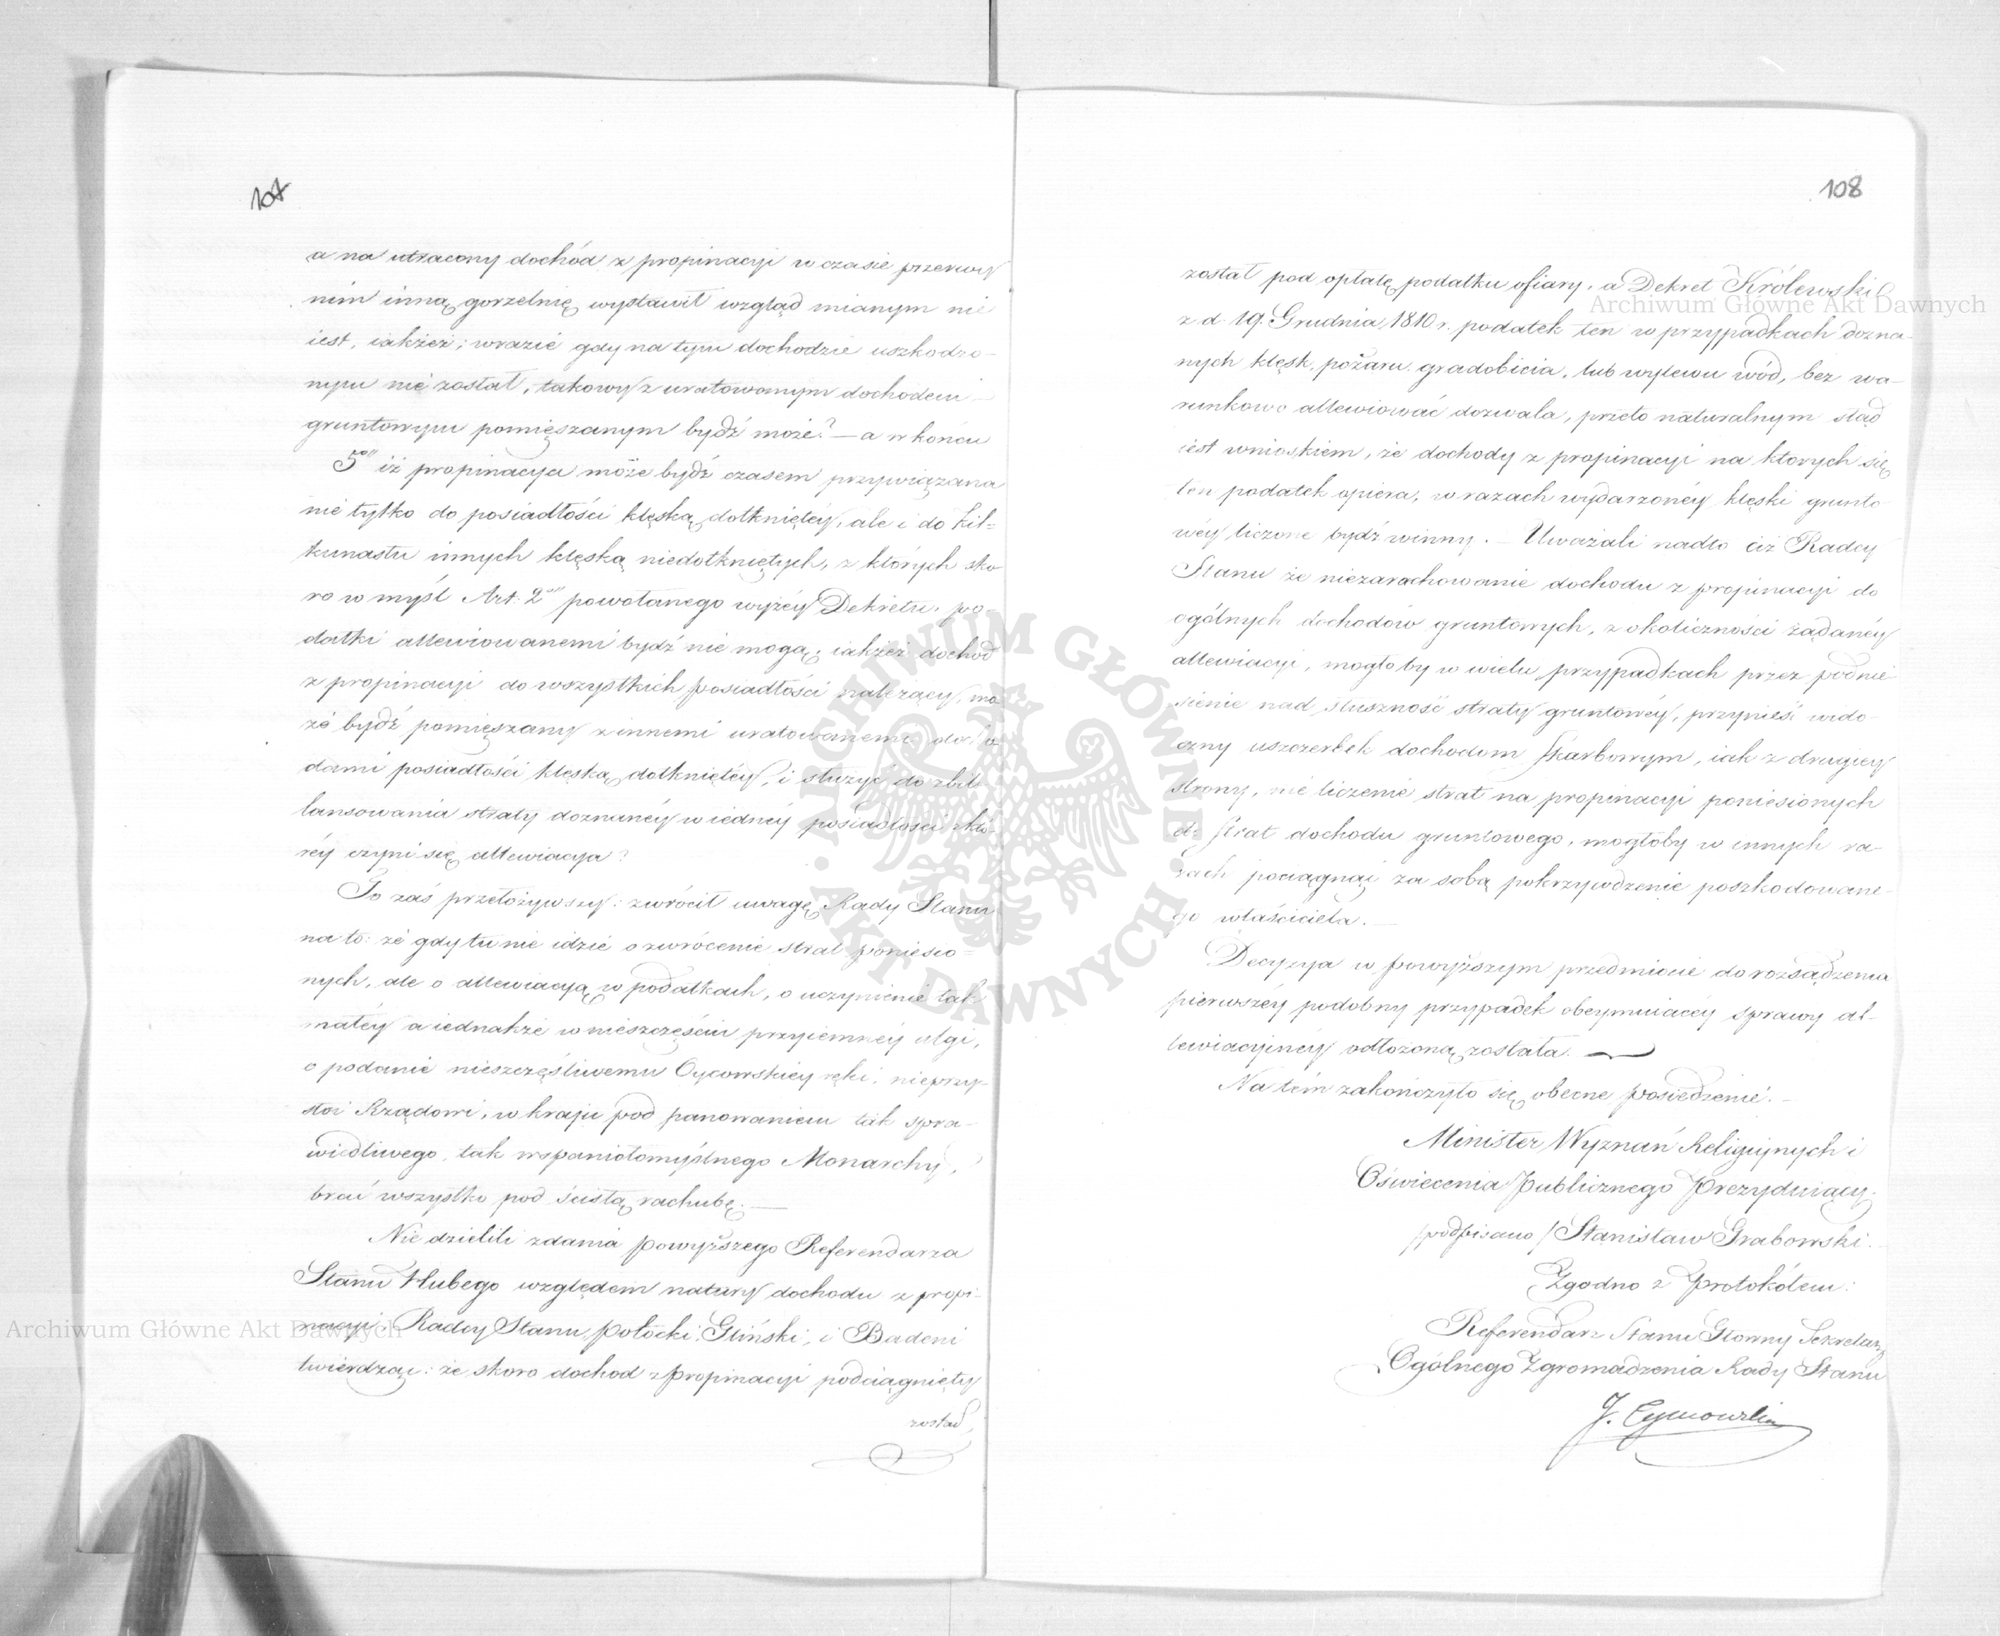 107
a na utracony dochód z propinacyi w czasie przerwy
nim inną gorzelnię wystawił wzgląd mianym nie
iest, iakżeż; wrazie gdy na tym dochodzie uszkodzo-
nym nie został, takowy z uratowanym dochodem
gruntowym pomięszanym bydź może? — a w końcu
5to iż propinacya może bydź czasem przywiązana
nie tylko do posiadłości klęską dotkniętéy, ale i do kil-
kunastu innych klęską niedotkniętych, z których sko
ro w myśl Art. 2go powołanego wyżéy Dekretu, po-
datki allewiowanemi bydź nie mogą; iakżeż dochod
z propinacyi do wszystkich posiadłości należący, mo-
że bydź pomięszany z innemi uratowanemi docho
dami posiadłości klęską dotkniętéy, i służyć do zbil-
lansowania straty doznanéy w iednéy posiadłości któ-
réy czyni się allewiacya?
To zaś przełożywszy: zwrócił uwagę Rady Stanu
na to: że gdy tu nie idzie o zwrócenie strat poniesio-
nych, ale o allewiacyą w podatkach, o uczynienie tak
małéy a iednakże w nieszczęściu przyiemnéy ulgi,
o podanie nieszczęśliwemu Oycowskiey ręki, nieprzy-
stoi Rządowi, w kraju pod panowaniem tak spra-
wiedliwego, tak wspaniałomyślnego Monarchy,
brać wszystko pod ścisłą rachubę. —
Nie dzielili zdania powyższego Referendarza
Stanu Hubego względem natury dochodu z propi-
nacyi. Radcy Stanu Potocki, Gliński, i Badeni
twierdząc: że skoro dochod z propinacyi podciągnięty
został
108
został pod opłatę podatku ofiary, a Dekret Królewski
z d. 19. Grudnia 1810 r. podatek ten w przypadkach dozna-
nych klęsk pożaru, gradobicia, lub wylewu wód, bez wa-
runkowo allewiować dozwala, przeto naturalnym stąd
iest wnioskiem, że dochody z propinacyi na ktorych się
ten podatek opiera, w razach wydarzonéy klęski grunto
wéy liczone bydź winny. — Uważali nadto ciż Radcy
Stanu że niezarachowanie dochodu z propinacyi do
ogólnych dochodów gruntowych, z okoliczności żądanéy
allewiacyi, mogłoby w wielu przypadkach przez podnie
sienie nad słuszność straty gruntowéy, przynieść wido-
czny uszczerbek dochodom Skarbowym, iak z drugiey
strony, nie liczenie strat na propinacyi poniesionych
do strat dochodu gruntowego, mogłoby w innych ra-
zach pociągnąć za sobą pokrzywdzenie poszkodowane-
go właściciela. —
Decyzya w powyższym przedmiocie do rozsądzenia
pierwszéy podobny przypadek obeymuiącéy sprawy al-
lewiacyiney odłożoną została. —
Na tém zakończyło się obecne posiedzenie. —
Minister Wyznań Religiynych i
Oświecenia Publicznego Prezyduiący.
/podpisano/ Stanisław Grabowski.
Zgodno z Protokółem:
Referendarz Stanu Głowny Sekretarz
Ogólnego Zgromadzenia Rady Stanu
Archiwum Główne Akt Dawnych
Archiwum Główne Akt Dawnych
ARCHIWUM GŁÓWNE · AKT DAWNYCH ·